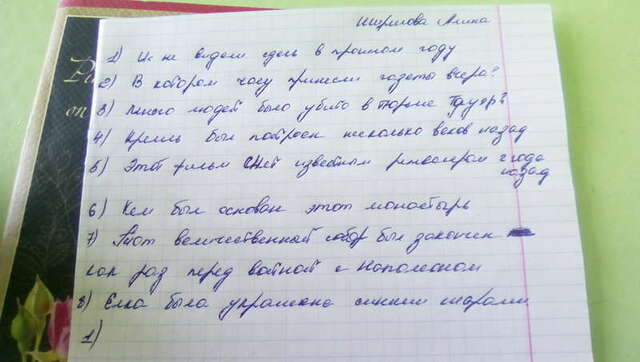 Ширилова Алина
1) Их не видели здесь в прошлом году
2) В котором часу принесли газеты вчера?
3) Много людей было убито в тюрьме Тауэр?
4) Кремль был построен несколько веков назад
5) Этот фильм снят известным режиссером 2 года
назад
6) Кем был основан этот монастырь
7) Этот величественный собор был закончен
как раз перед войной с Наполеоном
8) Елка была украшена синими шарами
1)
on